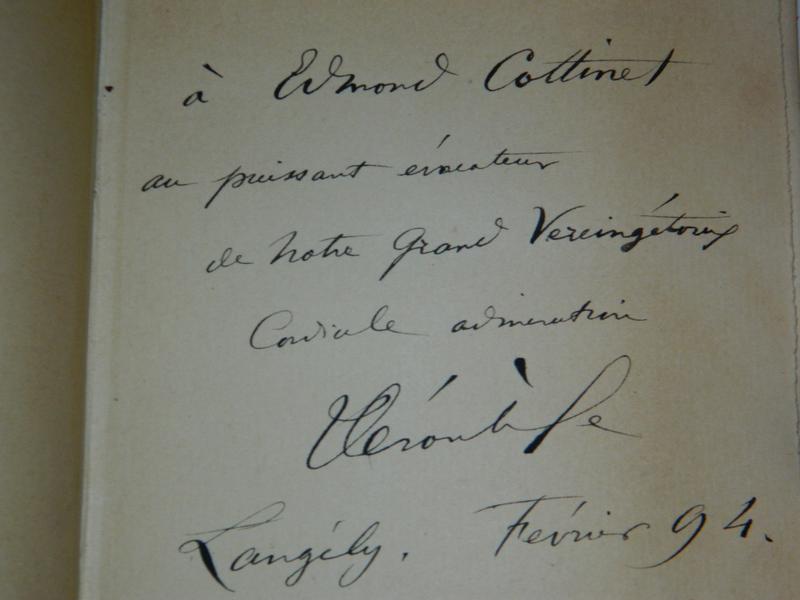 à Edmond Cottinet
au puissant évocateur
de notre Grand Vercingétorix
Cordiale admiration
Déroulède
Langély. Février 94.